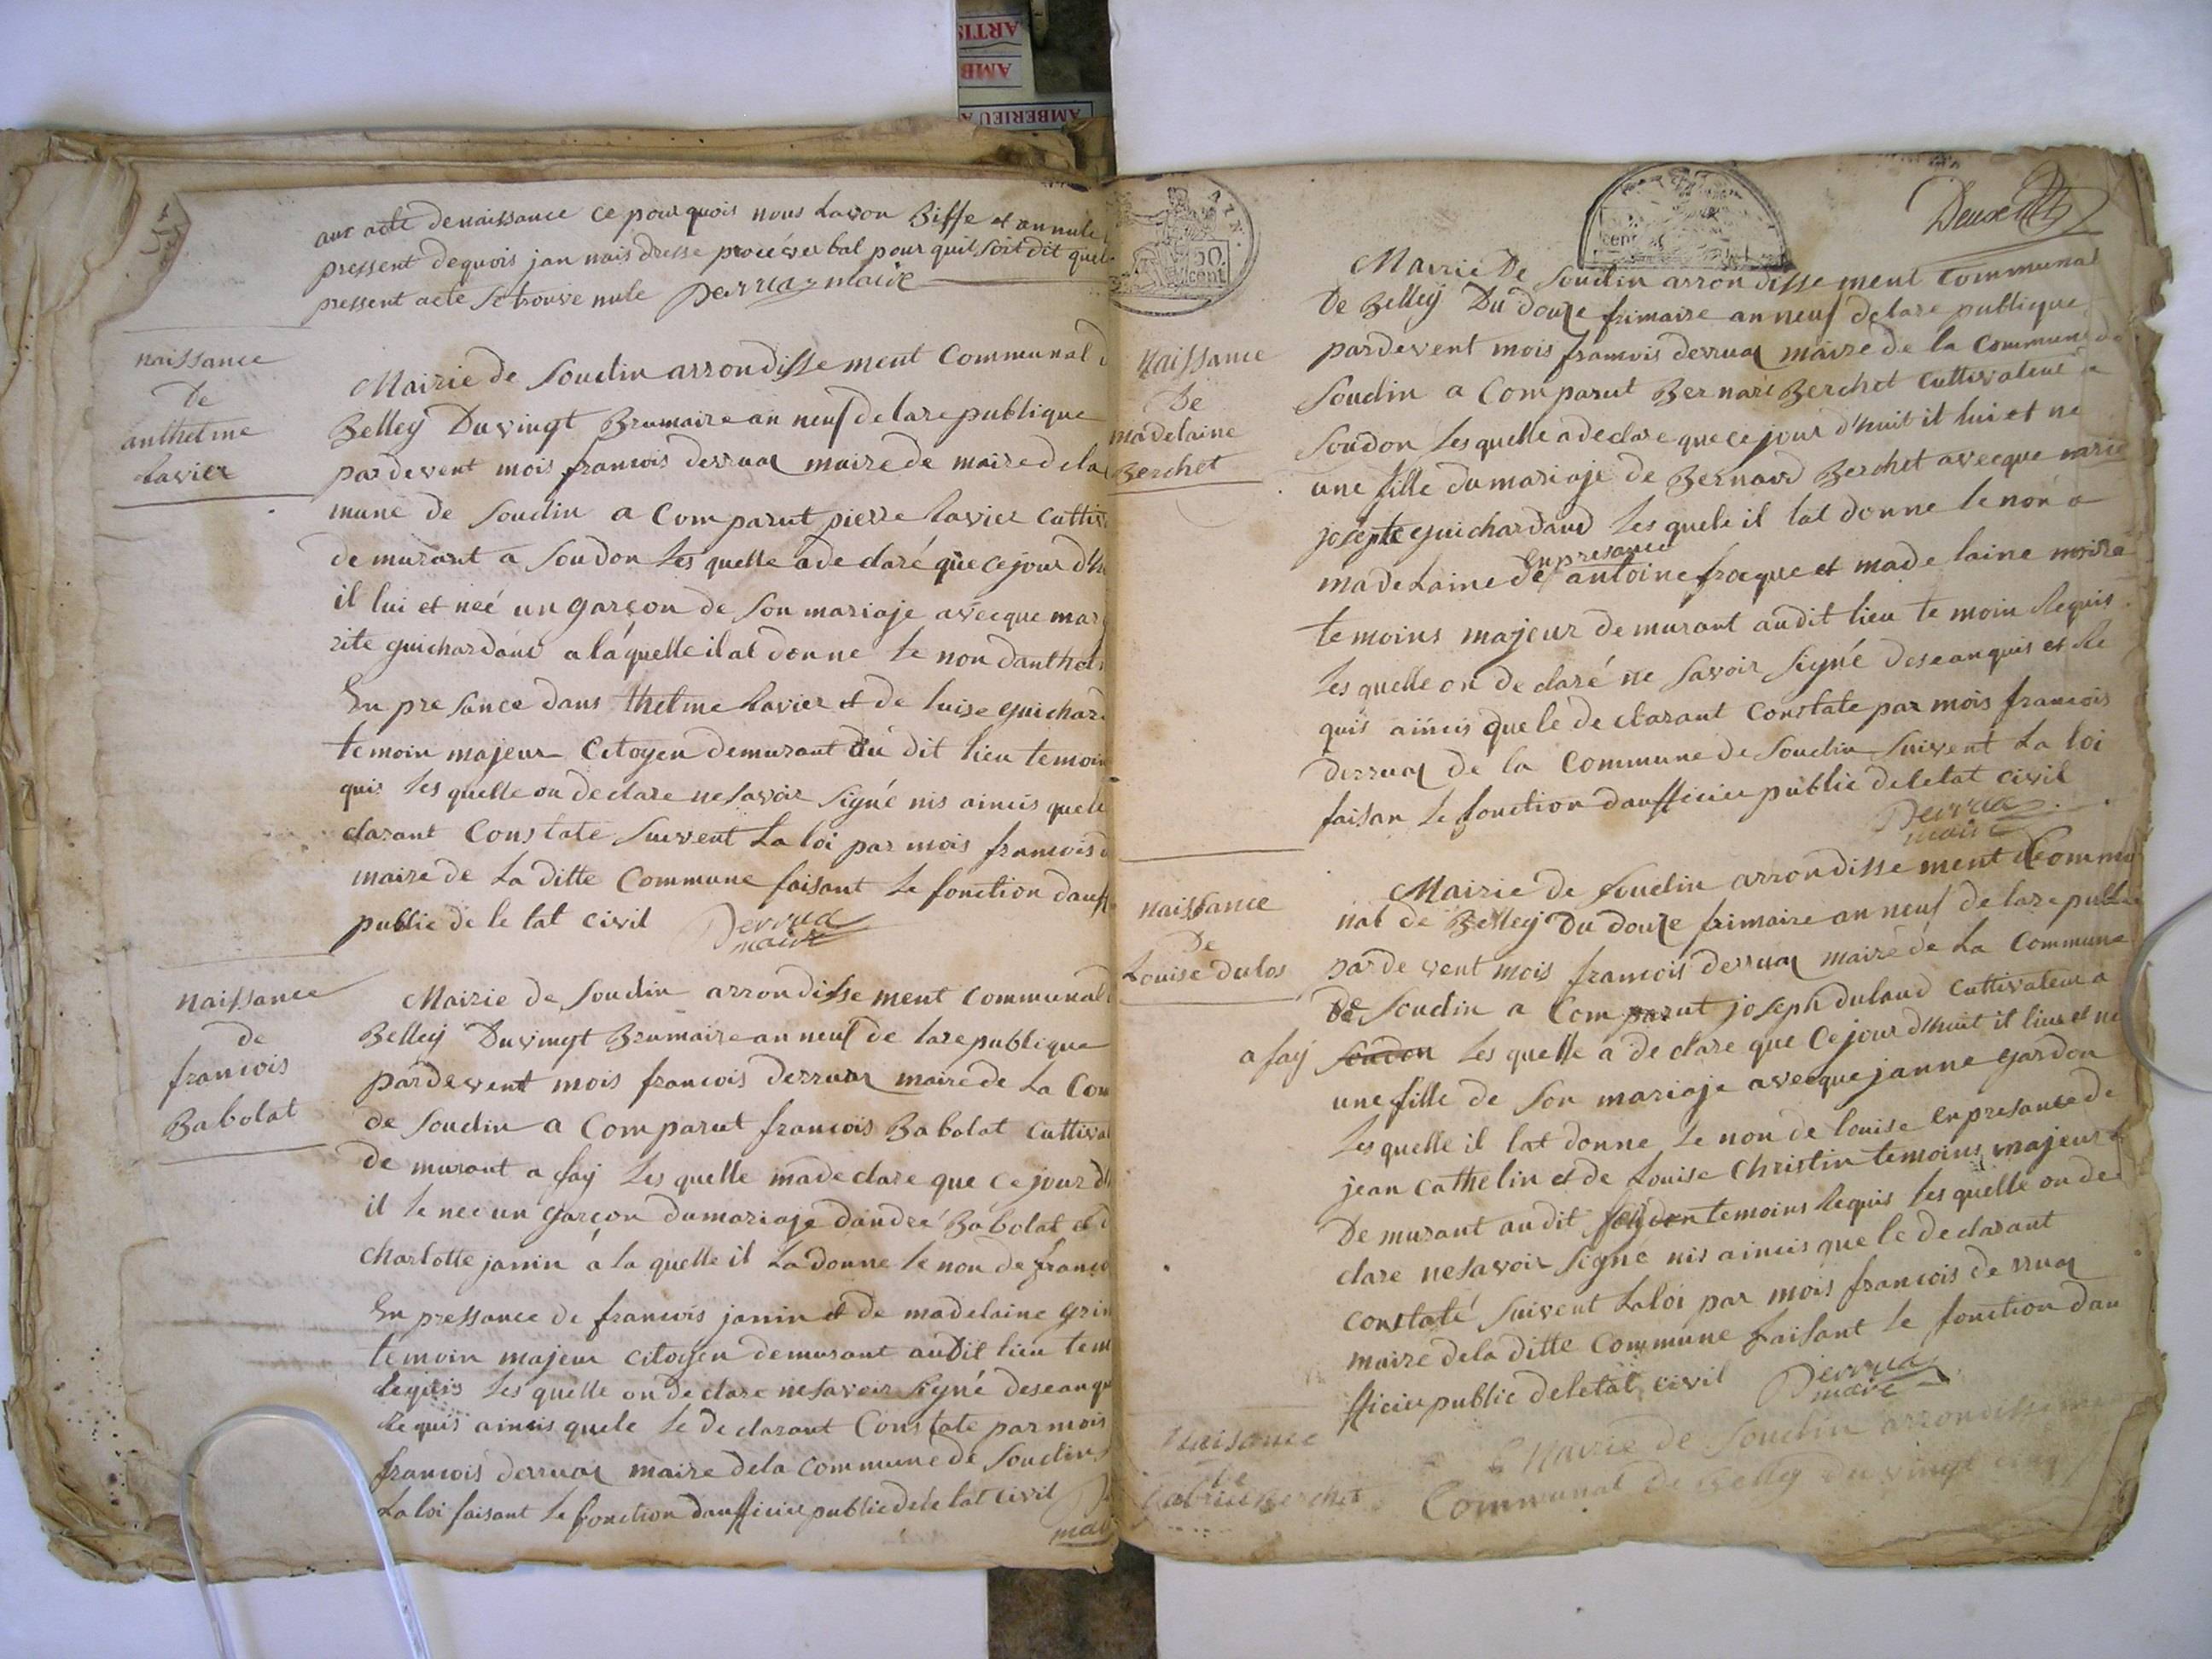 ARTIS
AMB
AMBERIEU
aux acte denaissance ce pour quois nous Lavon Biffe et annule
pressent dequois jan nais dresse procéverbal pour quil soit dit quel
pressent acte se trouve nule Derruaz maire
naissance
De
anthelme
Ravier
Mairie de Soudin arrondisse ment Communal
Belley Du vingt Brumaire an neuf de lare publique
par devent mois francois derruaz maire de maire dela
mune de Soudin a Comparut pierre Ravier Cultiv
de murant a Soudon Les quelle a de claré que ce jour d'hu
il lui et neé un garçon de son mariaje avecque marg
rite guichardand a la quelle il at donne le non danthel
En pre sance dans thelme Ravier et de luise guichard
temoin majeur Citoyen demurant du dit lieu temoin
quis Les quelle on declare ne savoir signé nis aincis quele
clarant Constate Suivent La loi par mois francois
maire de La ditte Commune faisant Le fonction dauff
public de le tat civil Derruaz
maire
naissance
de
francois
Babolat
Mairie de Soudin arrondisse ment communal
Belley Du vingt Brumaire an neuf de lare publique
par devent mois francois derruaz maire de La Com
de Soudin a Comparut francois Babolat Cultiva
De murant a fay Les quelle made clare que ce jour d'h
il le neé un garçon dumariaje d'andré Babolat et d
Charlotte janin a la quelle il La donne le non de franco
En pressance de francois janin et de madelaine grin
temoin majeur citoyen demurant audit lieu tem
Requis Les quelle on declare ne savoir signé deseanqu
Requis aincis quele le de clarant Constate par mois
francois derruaz maire dela commune de Soudin
La loi faisant Le fonction daufficier public de le tat civil
mai
50
cent
Naissance
De
madelaine
Berchet
Mairie De Soudin arrondisse ment Communal
De Belley Du douze frimaire an neuf de lare publique
par devent mois francois derruaz maire de la Commune de
Soudin a Comparut Bernard Berchet Cultivateur a
Soudon Les quelle a declare que ce jour d'huit il lui et ne
une fille du mariaje de Bernard Berchet avecque marie
josepte guichardand Les quele il lat donne le non a
en presance
madelaine de antoine froque et made laine
temoins majeur de murant audit lieu te moin Requis
Les quelle on de claré ne savoir signé deseanquis et Re
quis aincis que le de clarant Constate par mois francois
derruaz de la Commune de Soudin Suivent La loi
faisan Le fonction daufficier public deletat civil
Derruaz
maire
naissance
De
Louise dulos
Mairie de Soudin arrondisse ment Commu
nal de Belley Du douze frimaire an neuf de lare publi
par de vent mois francois derruaz maire de La Commune
de Soudin a Comparut joseph duland Cultivateur a
a fay Soudon Les quelle a de clare que Ce jour d'huit il lui et ne
une fille de son mariaje avecque janne gardon
Les quelle il lat donne Le non de louise en presance de
jean cathelin et de Louise Christin temoins majeur
De murant audit fay temoins Requis Les quelle on de
clare ne savoir signé nis aincis que le de clarant
constaté Suivent La loi par mois francois derruaz
maire dela ditte Commune faisant Le fonction dau
fficier public deletat civil Derruaz
maire
Naisance
De
Berchet
Mairie de Soudin arrondissement
Communal de Belley du vingt